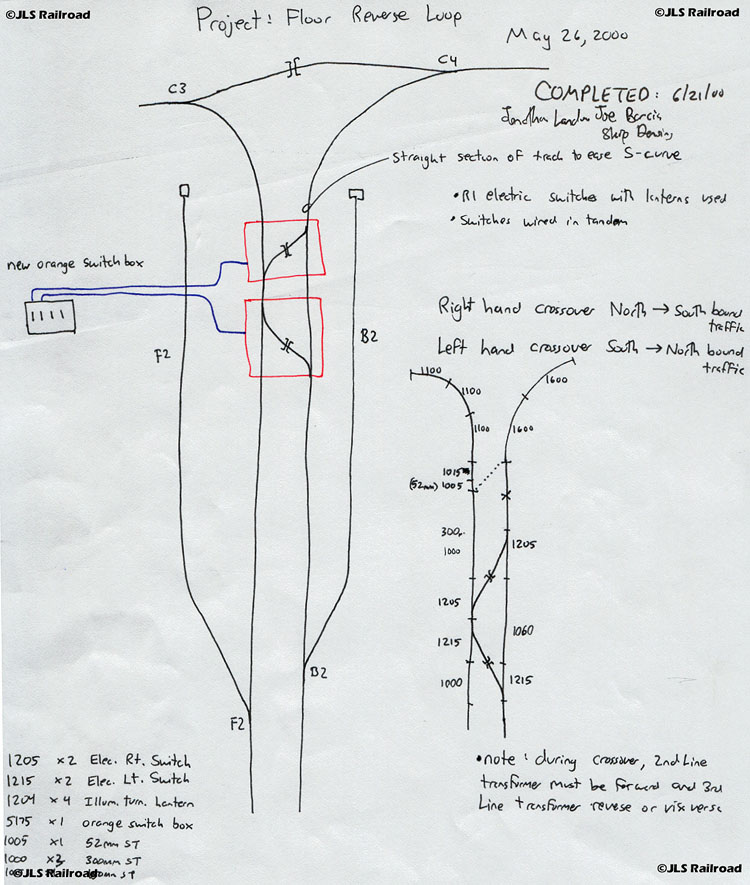 ©JLS Railroad
©JLS Railroad
Project: Floor Reverse Loop
May 26, 2000
C3
C4
COMPLETED: 6/21/00
Jonathan Landon Joe Barcia
Skip
straight section of track to ease S-curve
•R1 electric switches with lanterns used
•Switches wired in tandem
new orange switch box
F2
B2
Right hand crossover North → South bound
traffic
Left hand crossover South → North bound
traffic
1100
1100
1100
1600
1600
1015
(52mm) 1005
300
1000
1205
1205
1215
1060
1000
1215
B2
F2
•note: during crossover, 2nd Line
transformer must be forward and 3rd
Line transformer revese or vise versa
1205 x2 Elec. Rt. Switch
1215 x2 Elec. Lt. Switch
1204 x4 Illum. turn. Lantern
5175 x1 orange switch box
1005 x1 52mm ST
1000 x3 300mm ST
mm ST
©JLS Railroad
©JLS Railroad